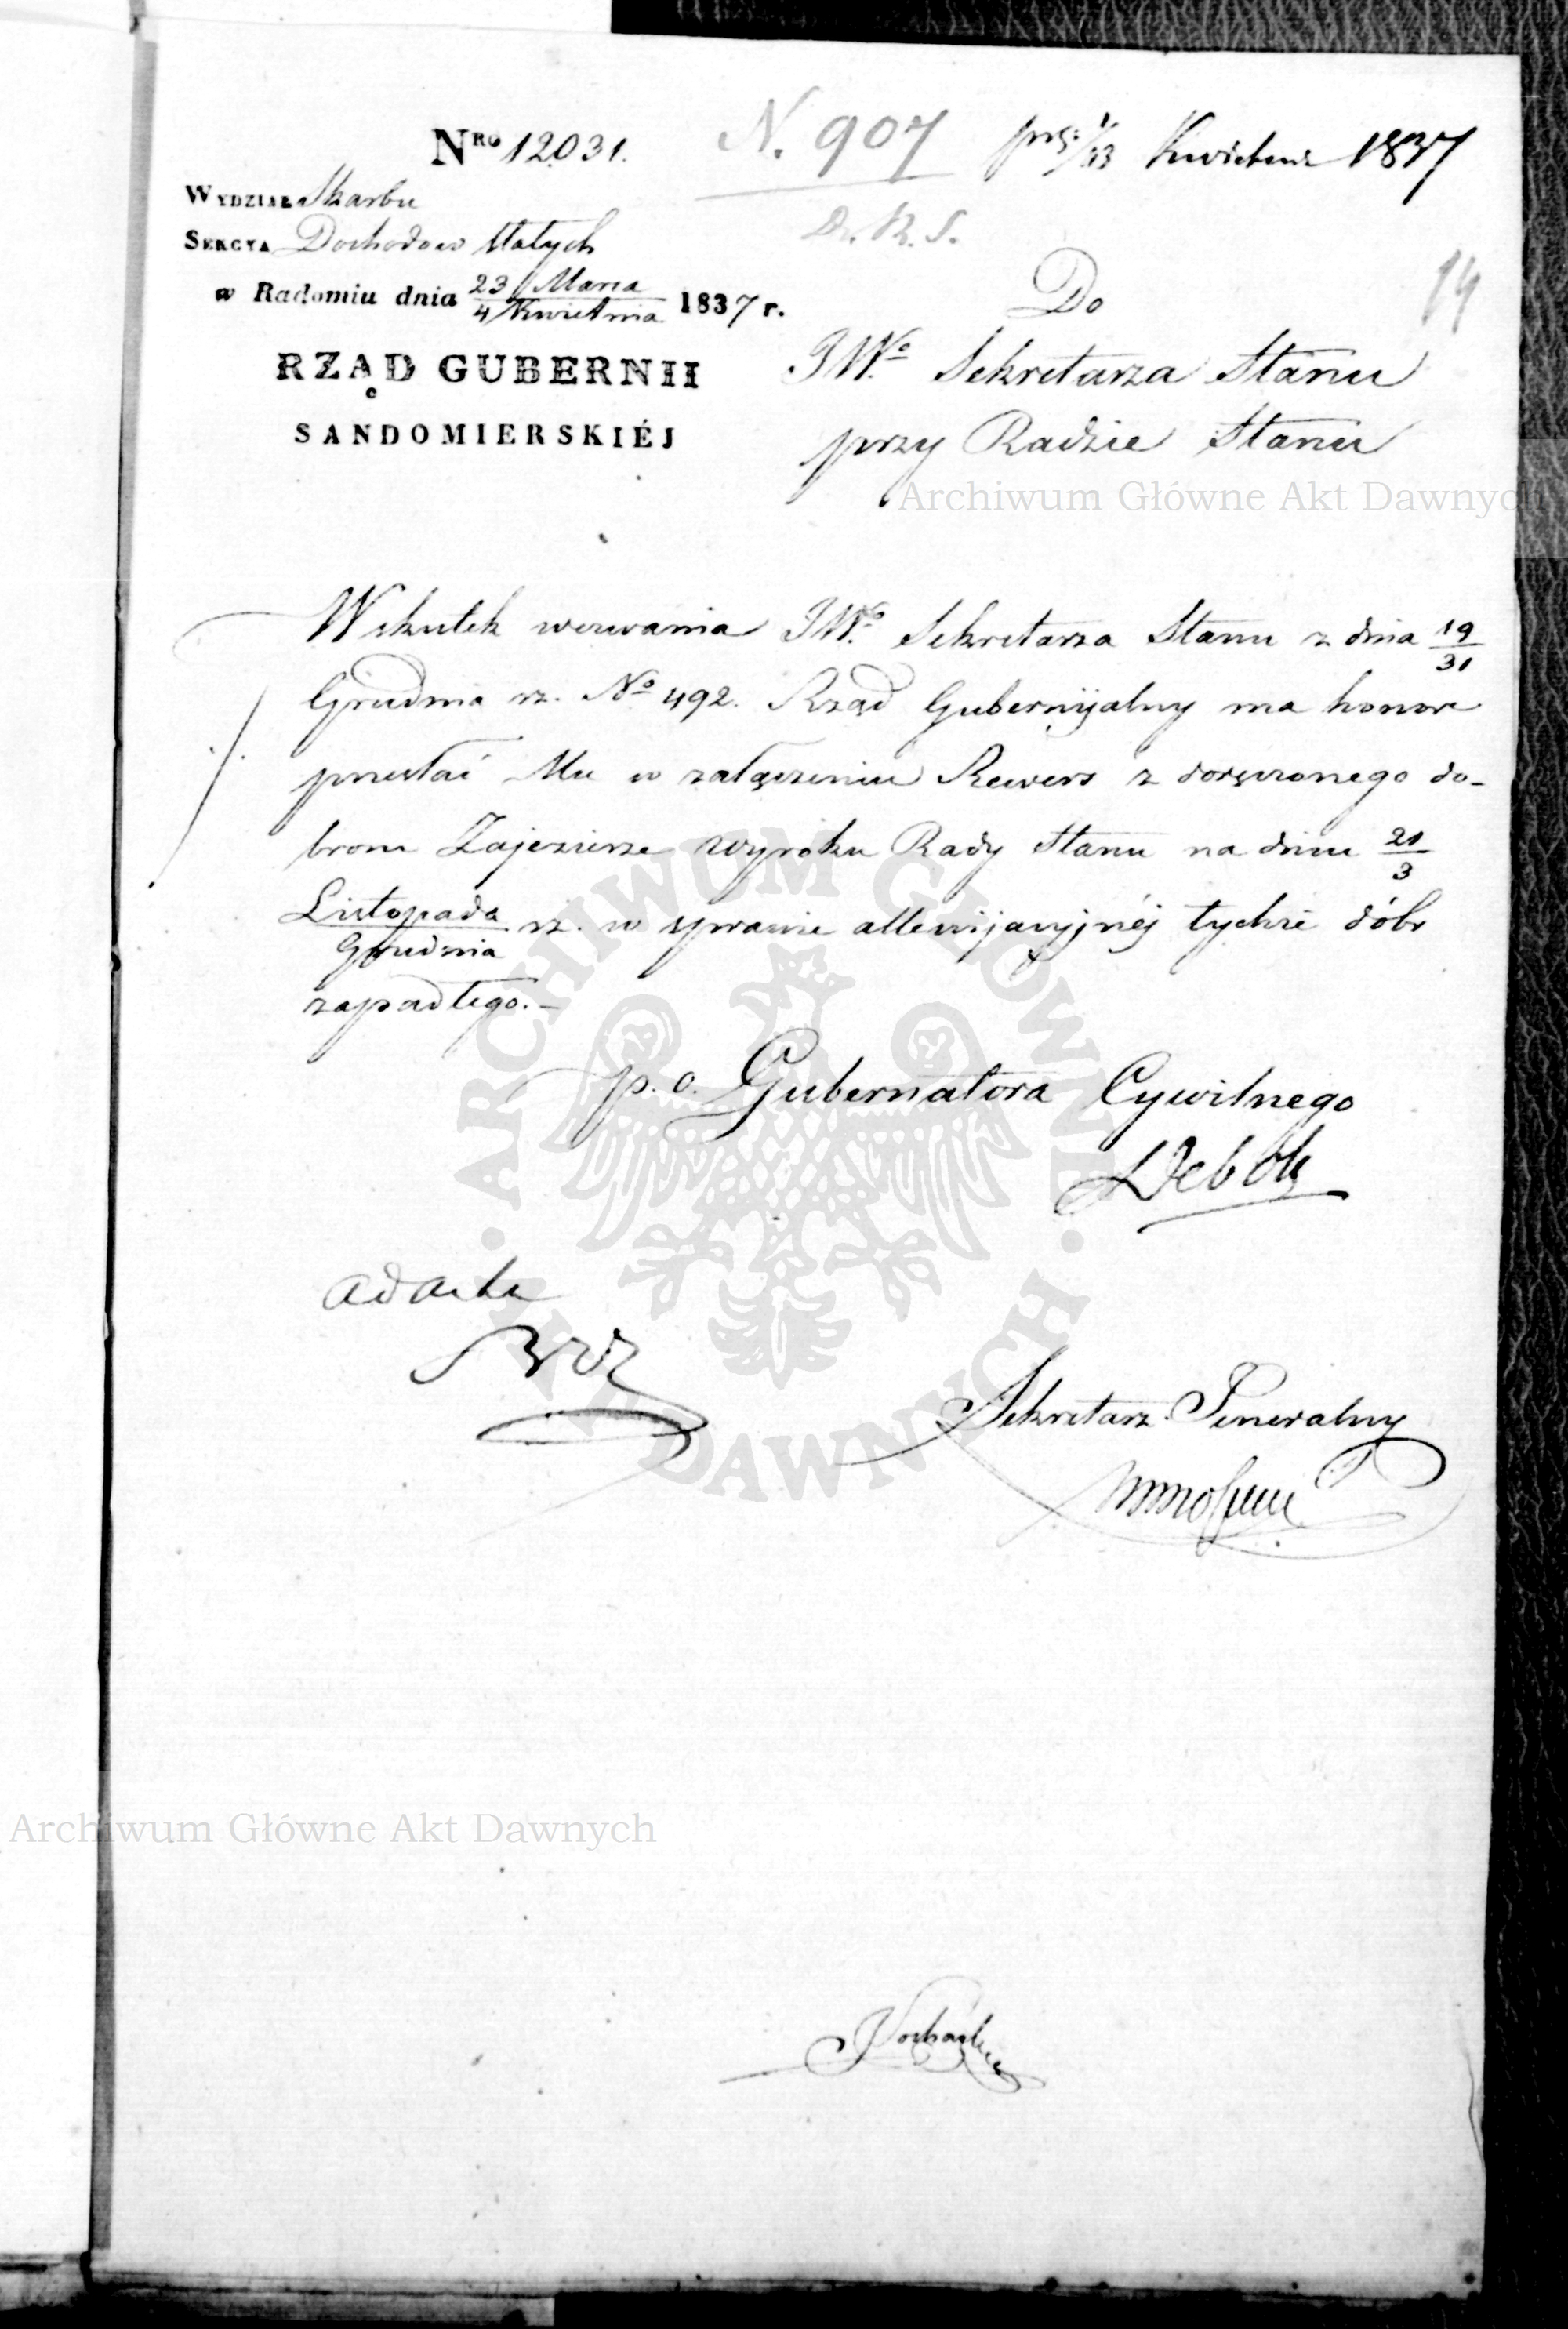 Nro 12031.
N. 907
prs: 1/13 Kwietnia 1837
Wydział Skarbu
D. R. S.
Sekcya Dochodów Stałych
w Radomiu dnia 23 Marca / 4 Kwietnia 1837 r.
14
RZĄD GUBERNII
SANDOMIERSKIÉJ
Do
JWo Sekretarza Stanu
przy Radzie Stanu
Archiwum Główne Akt Dawnych
Wskutek wezwania JWo Sekretarza Stanu z dnia 19/31
Grudnia rz. No 492. Rząd Gubernijalny ma honor
przesłać Mu w załączeniu Rewers z doręczonego do-
brom Zajezierze wyroku Rady Stanu na dniu 21/3
Listopada/Grudnia rz. w sprawie allewijacyjnéj tychże dóbr
zapadłego.–
p.o. Gubernatora Cywilnego
ad acta
Sekretarz Generalny
ARCHIWUM GŁÓWNE AKT DAWNYCH
Archiwum Główne Akt Dawnych